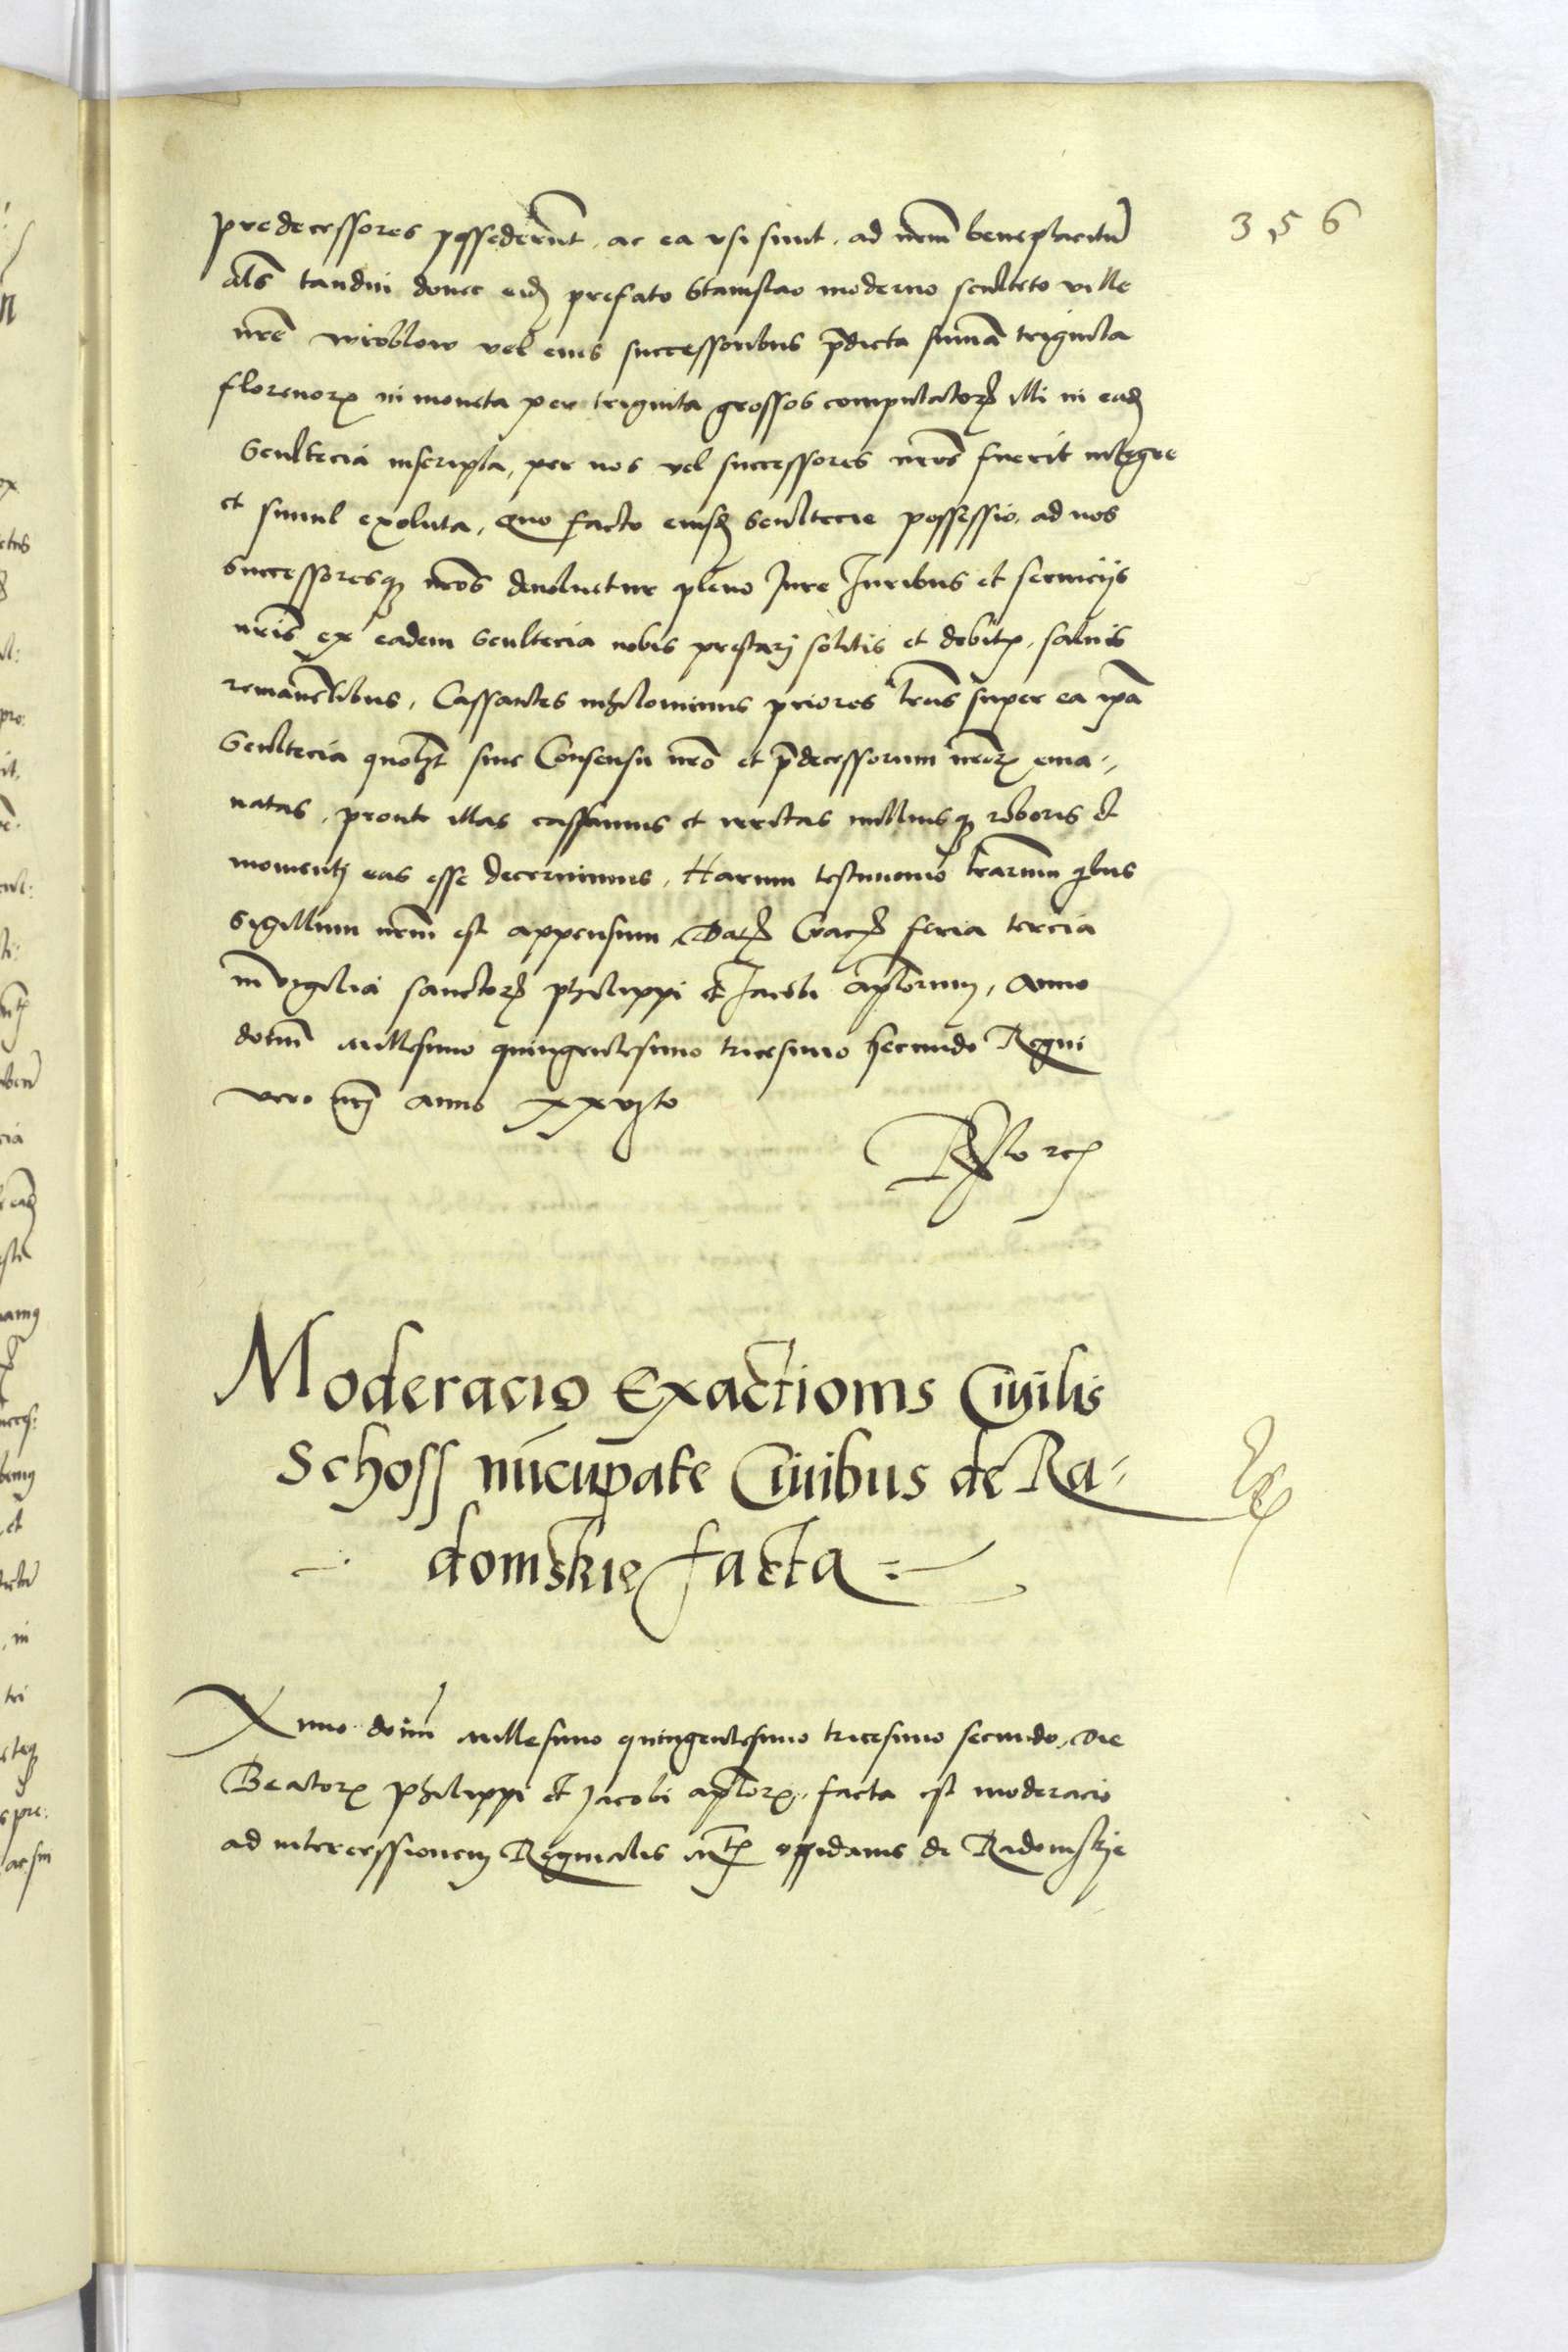 356
predecessores possederunt, ac ea vsi sunt, ad nrm̄ beneplacitū
als̄ tandiu donec eidē prefato Stanislao moderno sculteto ville
nrē Wroblow vel eius successoribus p̄dicta sum̄a triginta
florenorꝝ in moneta per triginta grossos computatorꝝ illi in eadē
Scultecia inscripta, per nos vel successores nrōs fuerit integre
et simul exoluta, Quo facto eiusdē Scultecie possessio, ad nos
Successoresqꝫ nrōs deuoluetur pleno Jure Juribus et seruicijs
nrīs ex eadem Scultecia nobis prestarj solitis et debitꝭ, saluis
remanētibus, Cassantes nihilominus priores lrās super ea ipā
Scultecia quolꝫt sine Consensu nrō et p̄decessorum nrōrꝝ ema-
natas, prout illas cassamus et irritas nulliusqꝫ roboris et
momentj eas esse decernimus, Harum testimonio lrārum qibus
Sigillum nrm̄ est appensum, Datꝭ Cracꝭ feria tercia
in vigilia sanctorꝝ philippi et Jacobi aplōrum, Anno
dominī Millesimo quingentesimo tricesimo secundo Regni
vero nrj̄ anno xxvjto
Moderacio Exactionis Ciuilis
Schoss nūcupate Ciuibus de Ra-
domskie facta
Anno dominī Millesimo quingentesimo tricesimo secundo, die
Beatorꝝ philippi et Jacobi aplōrꝝ, facta est moderacio
ad intercessionem Reginalis Mtꝭ oppidanis de Radomskie